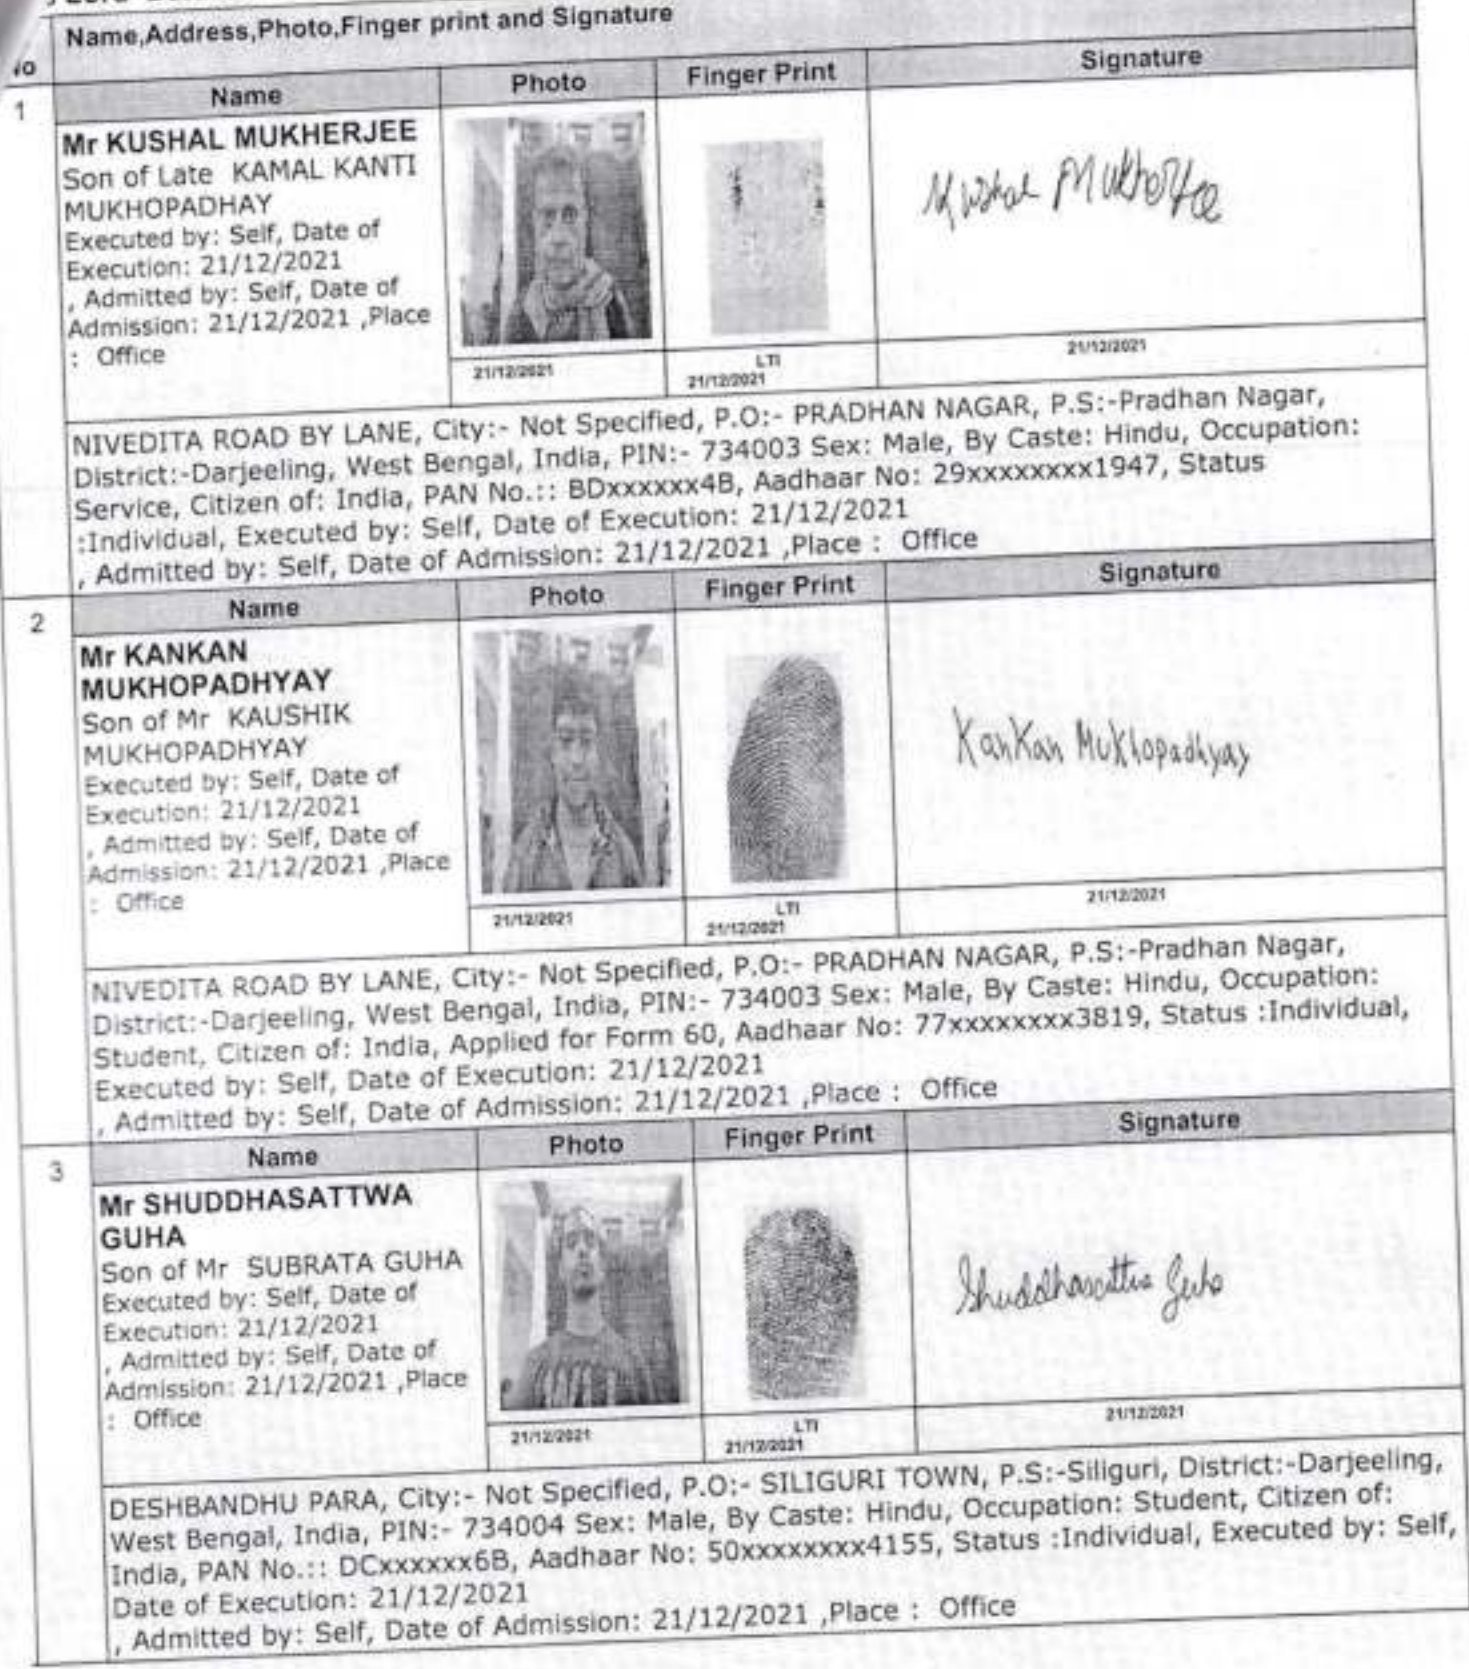 Name,Address,Photo,Finger print and Signature
No
Name Photo Finger Print Signature
1
Mr KUSHAL MUKHERJEE
Son of Late KAMAL KANTI
MUKHOPADHAY
Executed by: Self, Date of
Execution: 21/12/2021
, Admitted by: Self, Date of
Admission: 21/12/2021 ,Place
: Office
Kushal Mukherjee
21/12/2021
LTI
21/12/2021
21/12/2021
NIVEDITA ROAD BY LANE, City:- Not Specified, P.O:- PRADHAN NAGAR, P.S:-Pradhan Nagar,
District:-Darjeeling, West Bengal, India, PIN:- 734003 Sex: Male, By Caste: Hindu, Occupation:
Service, Citizen of: India, PAN No.:: BDxxxxxx4B, Aadhaar No: 29xxxxxxxx1947, Status
:Individual, Executed by: Self, Date of Execution: 21/12/2021
, Admitted by: Self, Date of Admission: 21/12/2021 ,Place : Office
Name Photo Finger Print Signature
2
Mr KANKAN
MUKHOPADHYAY
Son of Mr KAUSHIK
MUKHOPADHYAY
Executed by: Self, Date of
Execution: 21/12/2021
, Admitted by: Self, Date of
Admission: 21/12/2021 ,Place
: Office
KanKan Mukhopadhyay
21/12/2021
LTI
21/12/2021
21/12/2021
NIVEDITA ROAD BY LANE, City:- Not Specified, P.O:- PRADHAN NAGAR, P.S:-Pradhan Nagar,
District:-Darjeeling, West Bengal, India, PIN:- 734003 Sex: Male, By Caste: Hindu, Occupation:
Student, Citizen of: India, Applied for Form 60, Aadhaar No: 77xxxxxxxx3819, Status :Individual,
Executed by: Self, Date of Execution: 21/12/2021
, Admitted by: Self, Date of Admission: 21/12/2021 ,Place : Office
Name Photo Finger Print Signature
3
Mr SHUDDHASATTWA
GUHA
Son of Mr SUBRATA GUHA
Executed by: Self, Date of
Execution: 21/12/2021
, Admitted by: Self, Date of
Admission: 21/12/2021 ,Place
: Office
Shuddhasattwa Guha
21/12/2021
LTI
21/12/2021
21/12/2021
DESHBANDHU PARA, City:- Not Specified, P.O:- SILIGURI TOWN, P.S:-Siliguri, District:-Darjeeling,
West Bengal, India, PIN:- 734004 Sex: Male, By Caste: Hindu, Occupation: Student, Citizen of:
India, PAN No.:: DCxxxxxx6B, Aadhaar No: 50xxxxxxxx4155, Status :Individual, Executed by: Self,
Date of Execution: 21/12/2021
, Admitted by: Self, Date of Admission: 21/12/2021 ,Place : Office